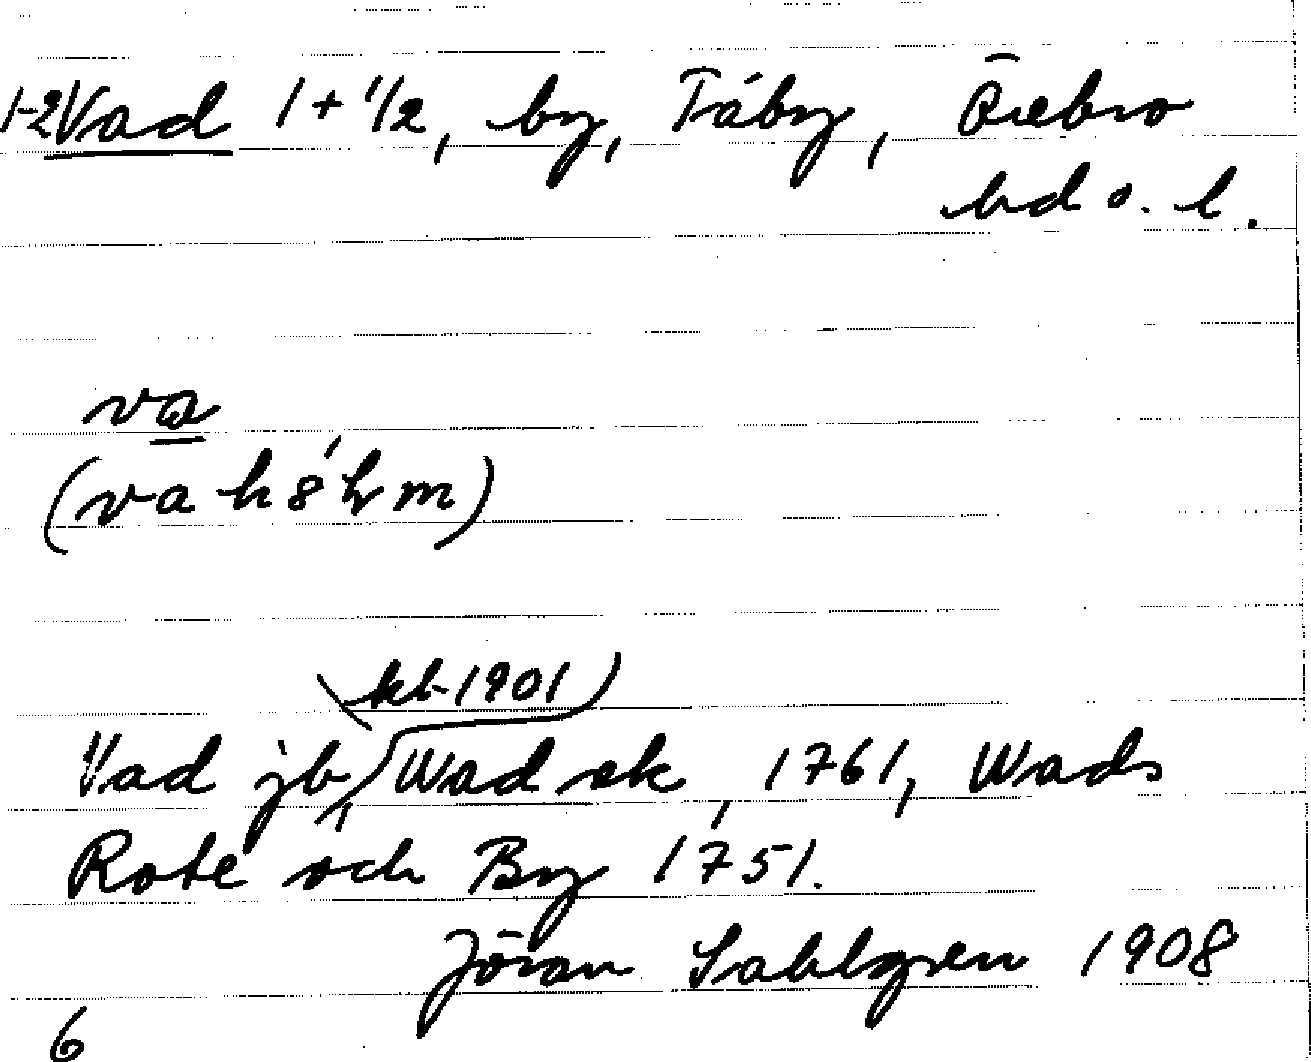 1-2 Vad 1 + 1/2, by, Täby, Örebro
hd o. l.
va
(va
kb 1901)
Vad jb, Wad sk, 1761, Wads
Rote och By 1751.
Jöran Sahlgren 1908
6